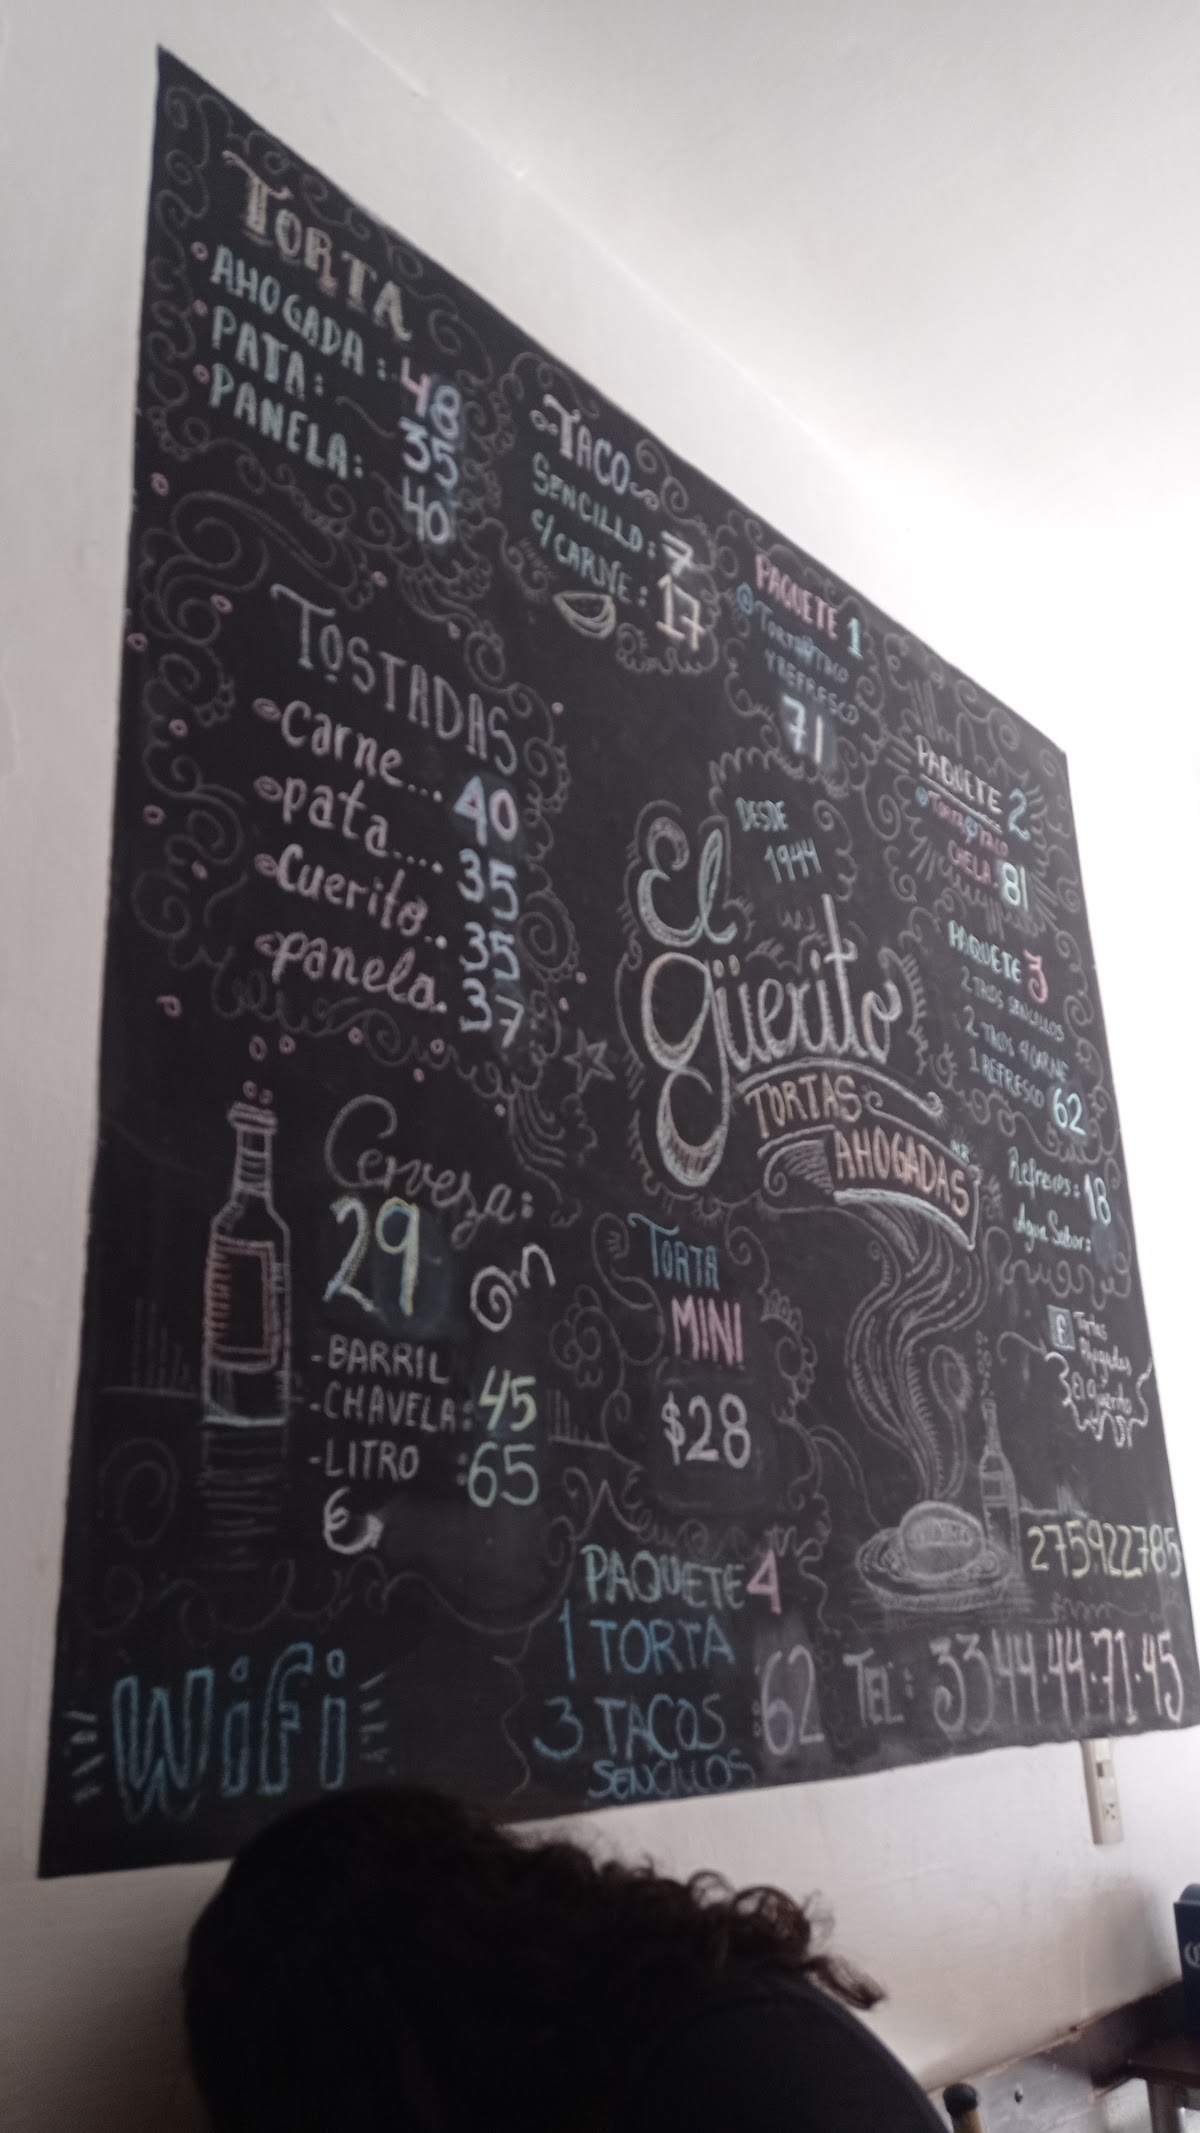 TORTA
AHOGADA: 48
PATA: 35
PANELA: 40
TACO
SENCILLO: 7
c/CARNE: 17
PAQUETE 1
TORTA TACO
Y REFRESCO
71
PAQUETE 2
TORTA TACO
CHELA. 81
PAQUETE 3
2 TACOS SENCILLOS
2 TACOS c/CARNE
1 REFRESCO 62
TOSTADAS
carne... 40
pata.... 35
cuerito.. 35
panela. 37
DESDE
1944
El
güerito
TORTAS
AHOGADAS
Refrescos: 18
Agua Sabor:
Cerveza:
29
-BARRIL
-CHAVELA: 45
-LITRO : 65
TORTA
MINI
$28
f Tortas
Ahogadas
El güerito
275922785
PAQUETE 4
1 TORTA
3 TACOS : 62
SENCILLOS
TEL: 33 44·44·71·45
WiFi